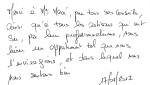 Merci à M. , pour tous ses conseils,
ainsi qu'à tous les artisans qui ont
su, par leur professionnalisme, nous
livrer un appartement tel que nous
l'envisagions, et dans lequel nous
nous sentons bien